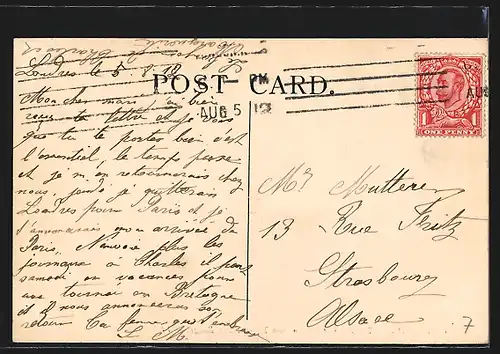 Londres le 5. 8. 12
POST CARD.
PM
AUG 5
12
AUG
ONE PENNY
1 1
Mon cher mari j'ai bien
reçu ta lettre et je vois
que tu te portes bien c'est
l'essentiel, le temps passe
et je m'en retournerais chez
nous, jeudi je quitterais
Londres pour Paris et je
t'annoncerais mon arrivée de
Paris, N'envoie plus les
journaux à Charles il part
samedi en vacances pour
une tournée en Bretagne
et il nous annoncera son
retour Ta femme qui t'embrasse
L. M.
Mr Mutterer
13 Rue Fritz
Strasbourg
Alsace
7